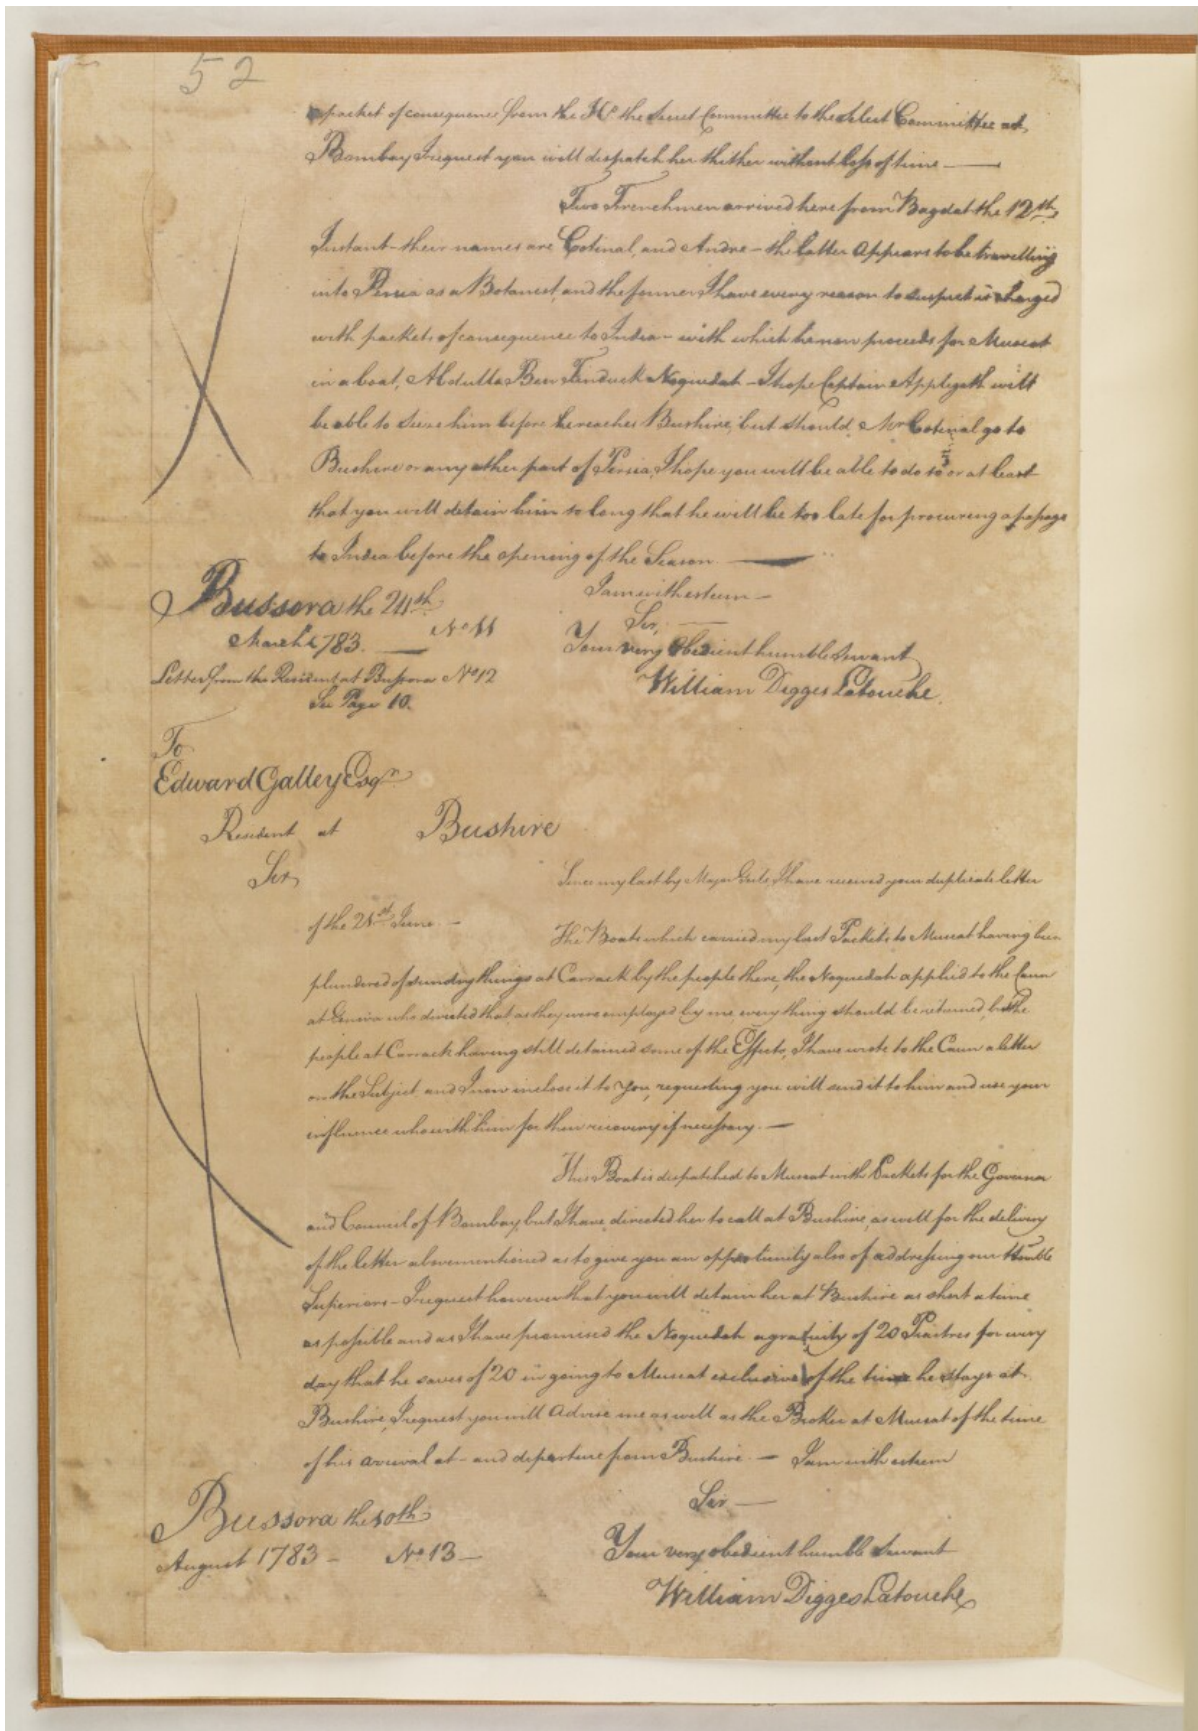 52
packet of consequence from the Hble the Secret Committee to the Select Committee at
Bombay I request you will dispatch her thither without loss of time —
Two Frenchmen arrived here from Bagdat the 12th
Instant – their names are Cotinal, and Andre – the latter appears to be travelling
into Persia as a Botanist, and the former I have every reason to suspect is charged
with packets of consequence to India – with which he now proceeds for Muscat
in a boat, Abdulla Ben Noquedah – I hope Captain Applegath will
be able to seize him before he reaches Bushire, but should Mr Cotinal go to
Bushire or any other part of Persia, I hope you will be able to do so or at least
that you will detain him so long that he will be too late for procuring a passage
to India before the opening of the Season —
I am with esteem –
Sir, —
Bussora the 24th
March 1783. — No 11
Your very Obedient humble Servant
William Digges Latouche.
Letter from the Resident at Bussora No 12
See Page 10.
To
Edward Galley Esqr
Resident at Bushire
Sir
Since my last by Major I have received your duplicate letter
of the 21st June. –
The Boats which carried my last Packets to Muscat having been
plundered of sundry things at Carrack by the people there, the Noquedah applied to the Caun
at who directed that as they were employed by me every thing should be returned, but the
people at Carrack having still detained some of the Effects, I have wrote to the Caun a letter
on the Subject and I now inclose it to you, requesting you will send it to him and use your
influence with him for their recovery if necessary. —
This Boat is dispatched to Muscat with Packets for the Governor
and Council of Bombay but I have directed her to call at Bushire, as well for the delivery
of the letter abovementioned as to give you an opportunity also of addressing our Hble
Superiors – I request however that you will detain her at Bushire as short a time
as possible and as I have promised the Noquedah a gratuity of 20 Piastres for every
day that he saves of 20 in going to Muscat exclusive of the time he stays at
Bushire, I request you will advise me as well as the Broker at Muscat of the time
of his arrival at – and departure from Bushire. — I am with esteem
Sir —
Bussora the 10th
August 1783 – No 13 –
Your very obedient humble Servant
William Digges Latouche